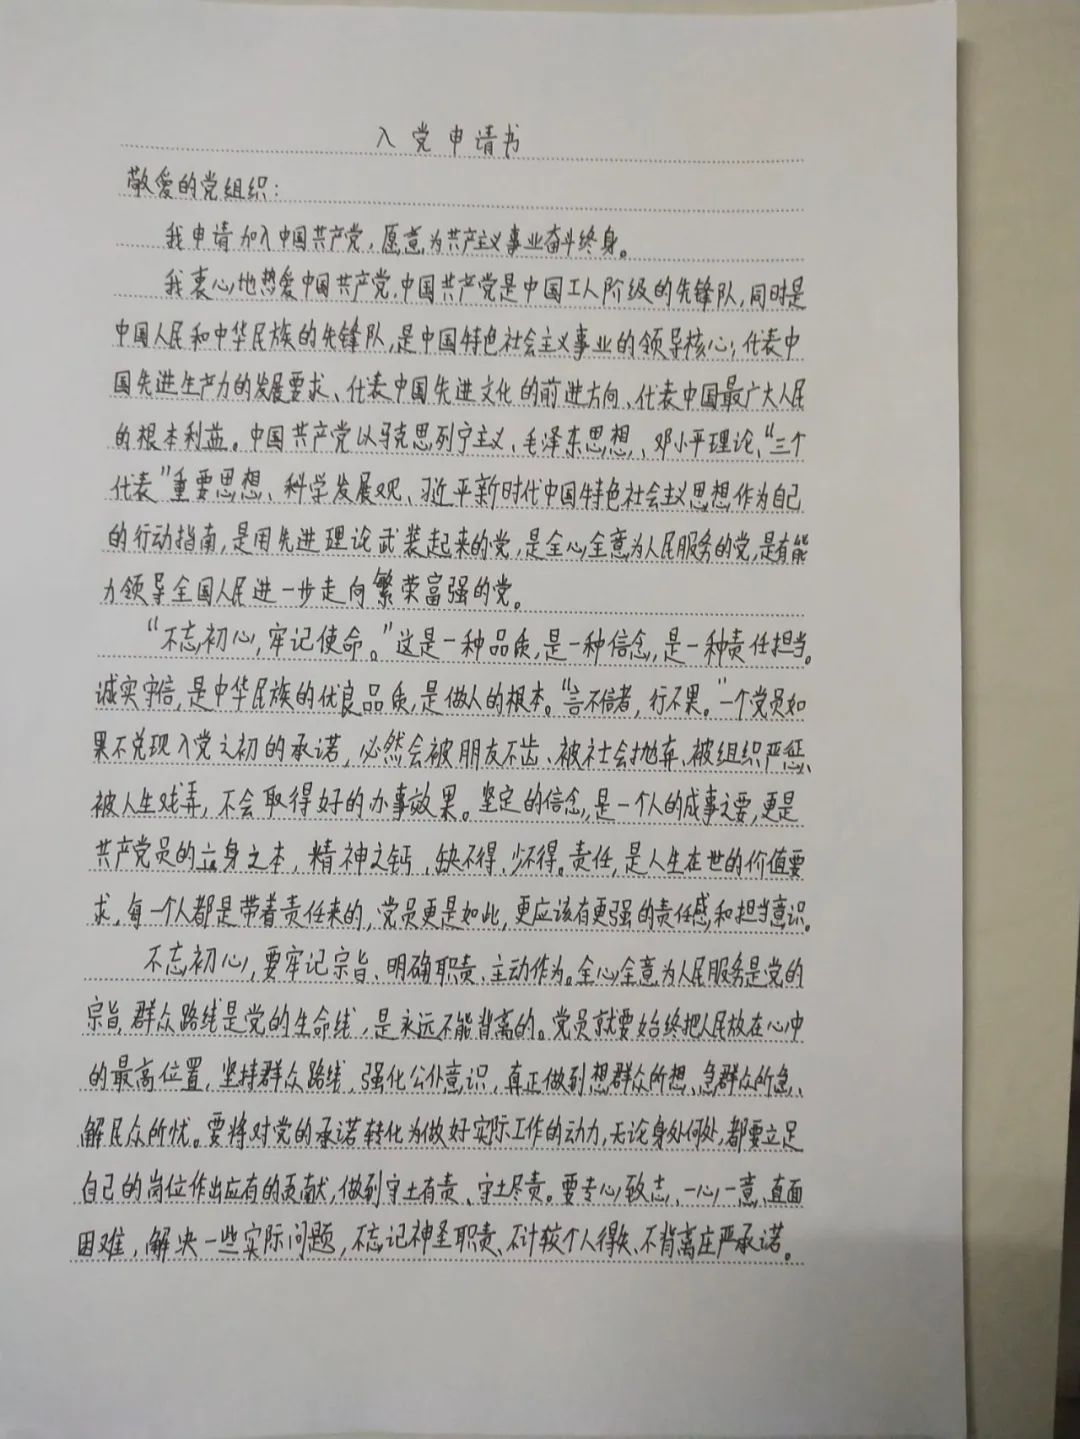 入党申请书
敬爱的党组织：
我申请加入中国共产党，愿意为共产主义事业奋斗终身。
我衷心地热爱中国共产党，中国共产党是中国工人阶级的先锋队，同时是
中国人民和中华民族的先锋队，是中国特色社会主义事业的领导核心；代表中
国先进生产力的发展要求、代表中国先进文化的前进方向、代表中国最广大人民
的根本利益。中国共产党以马克思列宁主义、毛泽东思想、邓小平理论、“三个
代表”重要思想、科学发展观、习近平新时代中国特色社会主义思想作为自己
的行动指南，是用先进理论武装起来的党，是全心全意为人民服务的党，是有能
力领导全国人民进一步走向繁荣富强的党。
“不忘初心，牢记使命。”这是一种品质，是一种信念，是一种责任担当。
诚实守信，是中华民族的优良品质，是做人的根本。“言不信者，行不果。”一个党员如
果不兑现入党之初的承诺，必然会被朋友不齿、被社会抛弃、被组织严惩、
被人生戏弄，不会取得好的办事效果。坚定的信念，是一个人的成事之要，更是
共产党员的立身之本，精神之钙，缺不得，少不得。责任，是人生在世的价值要
求，每一个人都是带着责任来的，党员更是如此，更应该有更强的责任感和担当意识。
不忘初心，要牢记宗旨、明确职责、主动作为。全心全意为人民服务是党的
宗旨，群众路线是党的生命线，是永远不能背离的。党员就要始终把人民放在心中
的最高位置，坚持群众路线，强化公仆意识，真正做到想群众所想、急群众所急、
解民众所忧。要将对党的承诺转化为做好实际工作的动力，无论身处何处，都要立足
自己的岗位作出应有的贡献，做到守土有责、守土尽责。要专心致志、一心一意，直面
困难，解决一些实际问题，不忘记神圣职责、不计较个人得失、不背离庄严承诺。